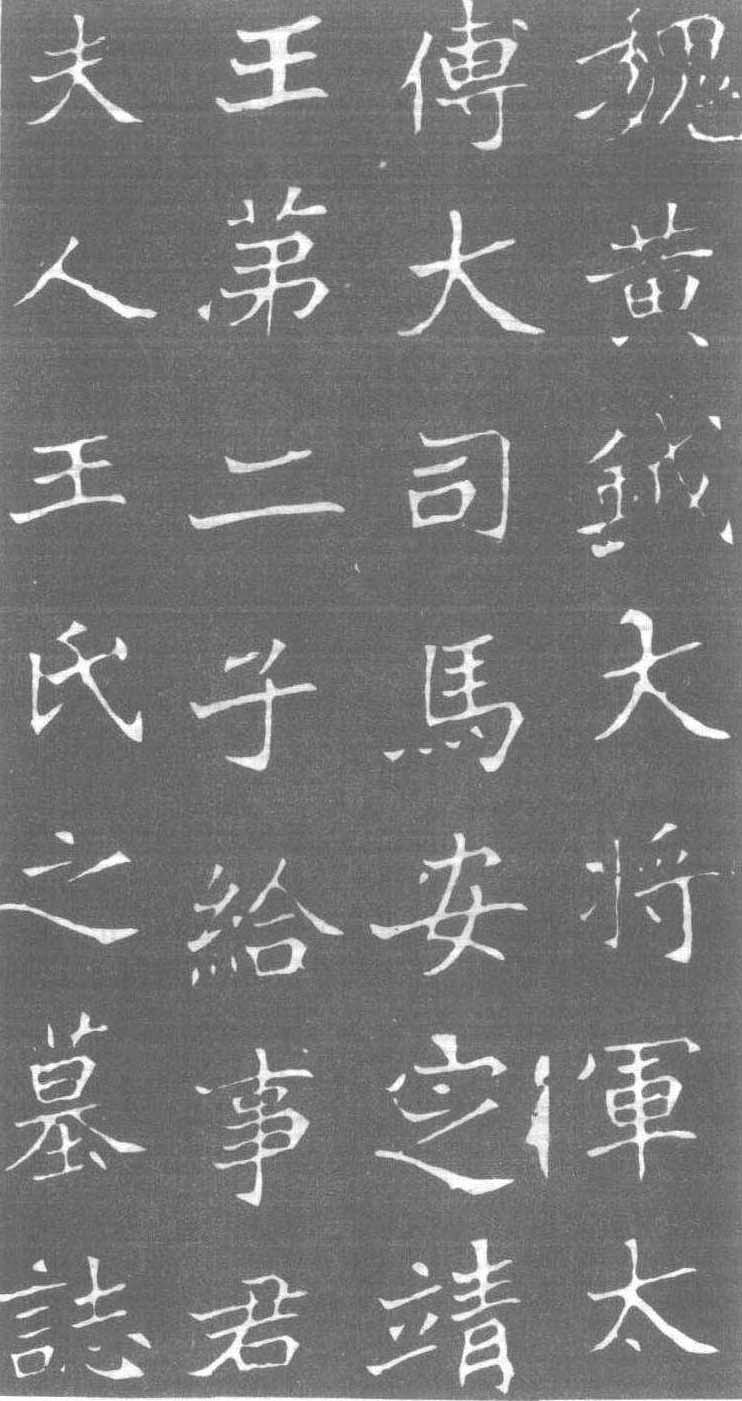 魏黄鉞大将軍太
傅大司馬安定靖
王苐二子給事君
夫人王氏之墓誌